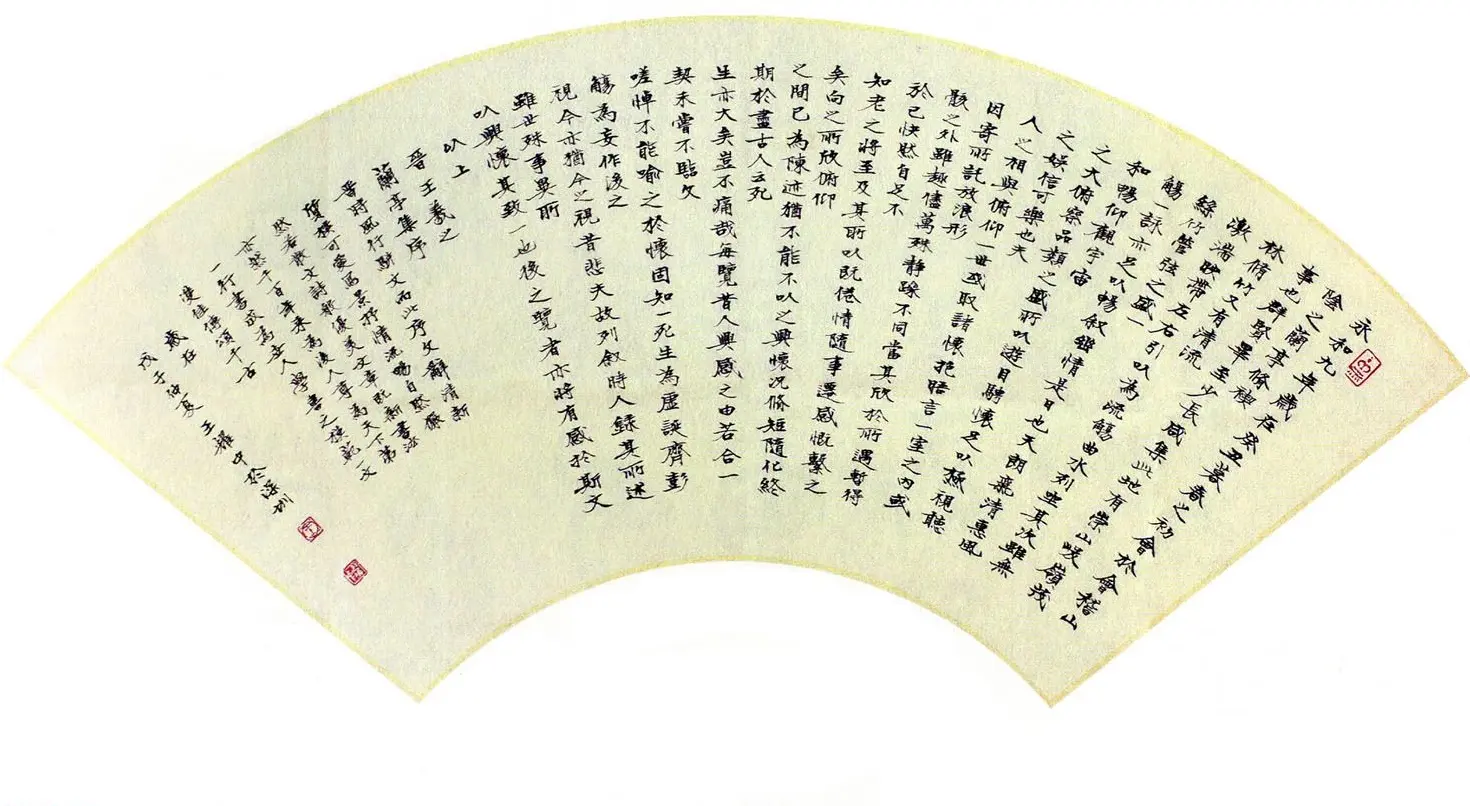 永和九年歲在癸丑暮春之初會於會稽山
陰之蘭亭脩禊
事也群賢畢至少長咸集此地有崇山峻嶺茂
林脩竹又有清流
激湍映帶左右引以為流觴曲水列坐其次雖無
絲竹管弦之盛一
觴一詠亦足以暢敘幽情是日也天朗氣清惠風
和暢仰觀宇宙
之大俯察品類之盛所以遊目騁懷足以極視聽
之娛信可樂也夫
人之相與俯仰一世或取諸懷抱晤言一室之內或
因寄所託放浪形
骸之外雖趣儘萬殊靜躁不同當其欣於所遇暫得
於己快然自足不
知老之將至及其所以既倦情隨事遷感慨繫之
矣向之所欣俯仰
之間已為陳迹猶不能不以之興懷況脩短隨化終
期於盡古人云死
生亦大矣豈不痛哉每覽昔人興感之由若合一
契未嘗不臨文
嗟悼不能喻之於懷固知一死生為虛誕齊彭
觴為妄作後之
視今亦猶今之視昔悲夫故列敘時人錄其所述
雖世殊事異所
以興懷其致一也後之覽者亦將有感於斯文
以上
晉王羲之
蘭亭集序
晉時風行駢文而此序文辭清新
質樸可愛寫景抒情流暢自然
散文詩都優美文章既新書法
亦然千百年來為後人尊為天下第
一行書成為吾人學書之模範文
雙佳傳頌千古
歲在
戊子仲夏王耀中於深圳